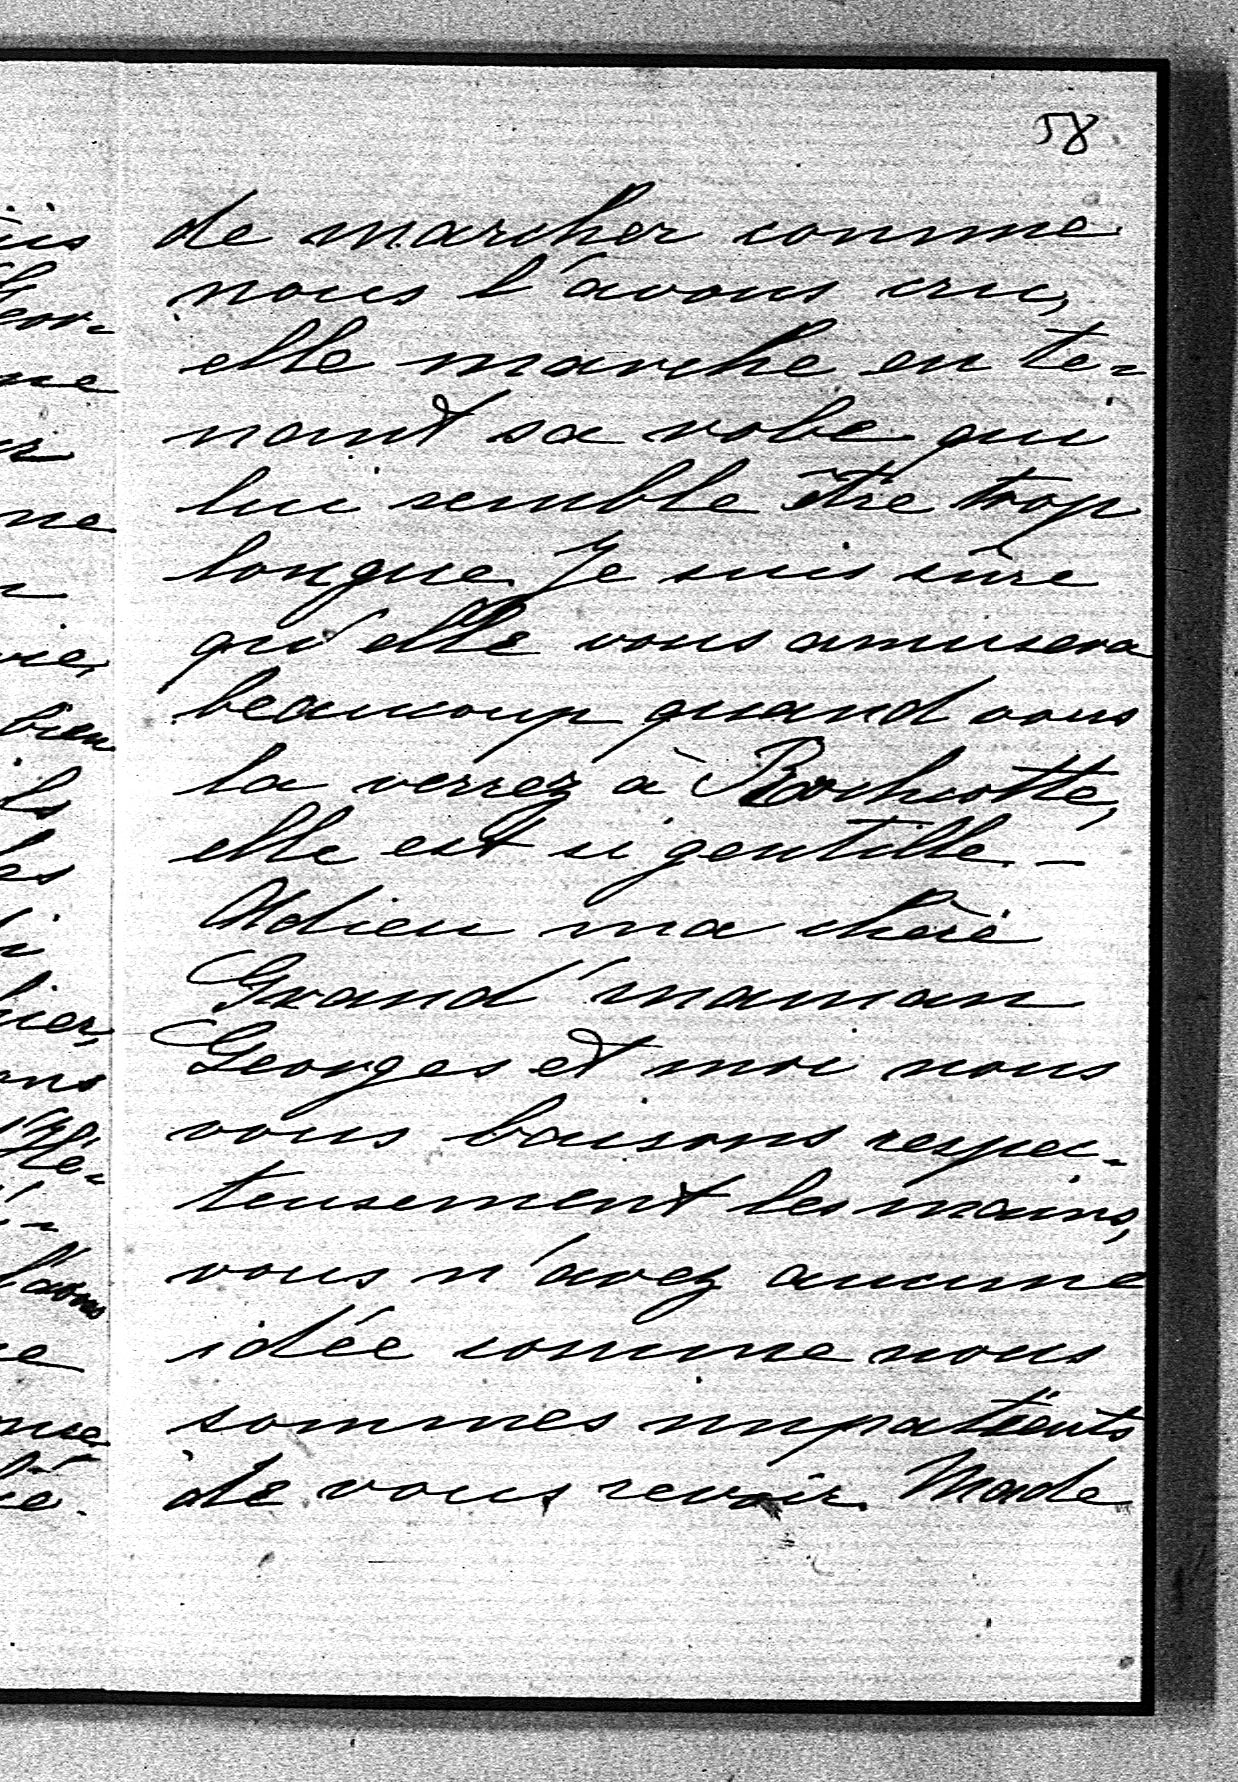 58
de marcher comme
nous l'avons cru,
elle marche en te-
nant sa robe qui
lui semble être trop
longue. Je suis sûre
qu'elle vous amusera
beaucoup quand vous
la verrez à Rochcotte,
elle est si gentille. -
Adieu ma chère
Grand'maman
Georges et moi nous
vous baisons respec-
teusement les mains,
vous n'avez aucune
idée comme nous
sommes impatients
de vous revoir. Made